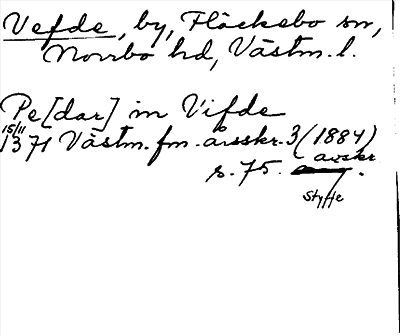 Vefde, by, Fläckebo sn,
Norrbo hd, Västm. l.
Pe[dar] in Vifde
15/11
1371 Västm. fm. årsskr. 3 (1884)
s. 75. avskr.
Styffe